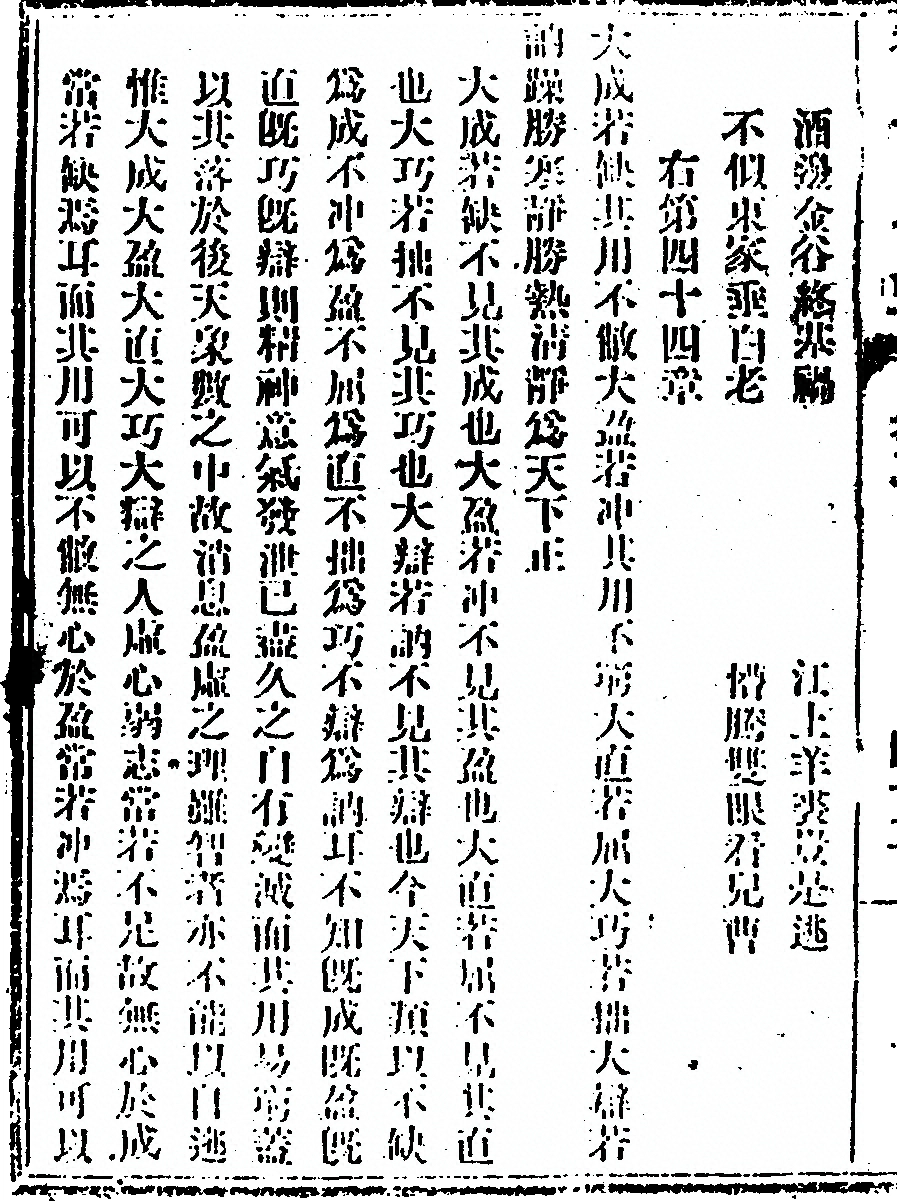 酒殽金谷終基禍　江上羊裘豈是逃
不似東家垂白老　懵騰雙眼看兒曹
右第四十四章
大成若缺其用不敝大盈若冲其用不窮大直若屈大巧若拙大辯若
訥躁勝寒靜勝熱清靜為天下正
大成若缺不見其成也大盈若冲不見其盈也大直若屈不見其直
也大巧若拙不見其巧也大辯若訥不見其辯也今天下類以不缺
為成不冲為盈不屈為直不拙為巧不辯為訥耳不知既成既盈既
直既巧既辯則精神意氣發泄已盡久之自有變滅而其用易窮蓋
以其落於後天象數之中故消息盈虛之理雖智者亦不能以自逃
惟大成大盈大直大巧大辯之人虛心弱志常若不足故無心於成
常若缺焉耳而其用可以不敝無心於盈常若冲焉耳而其用可以